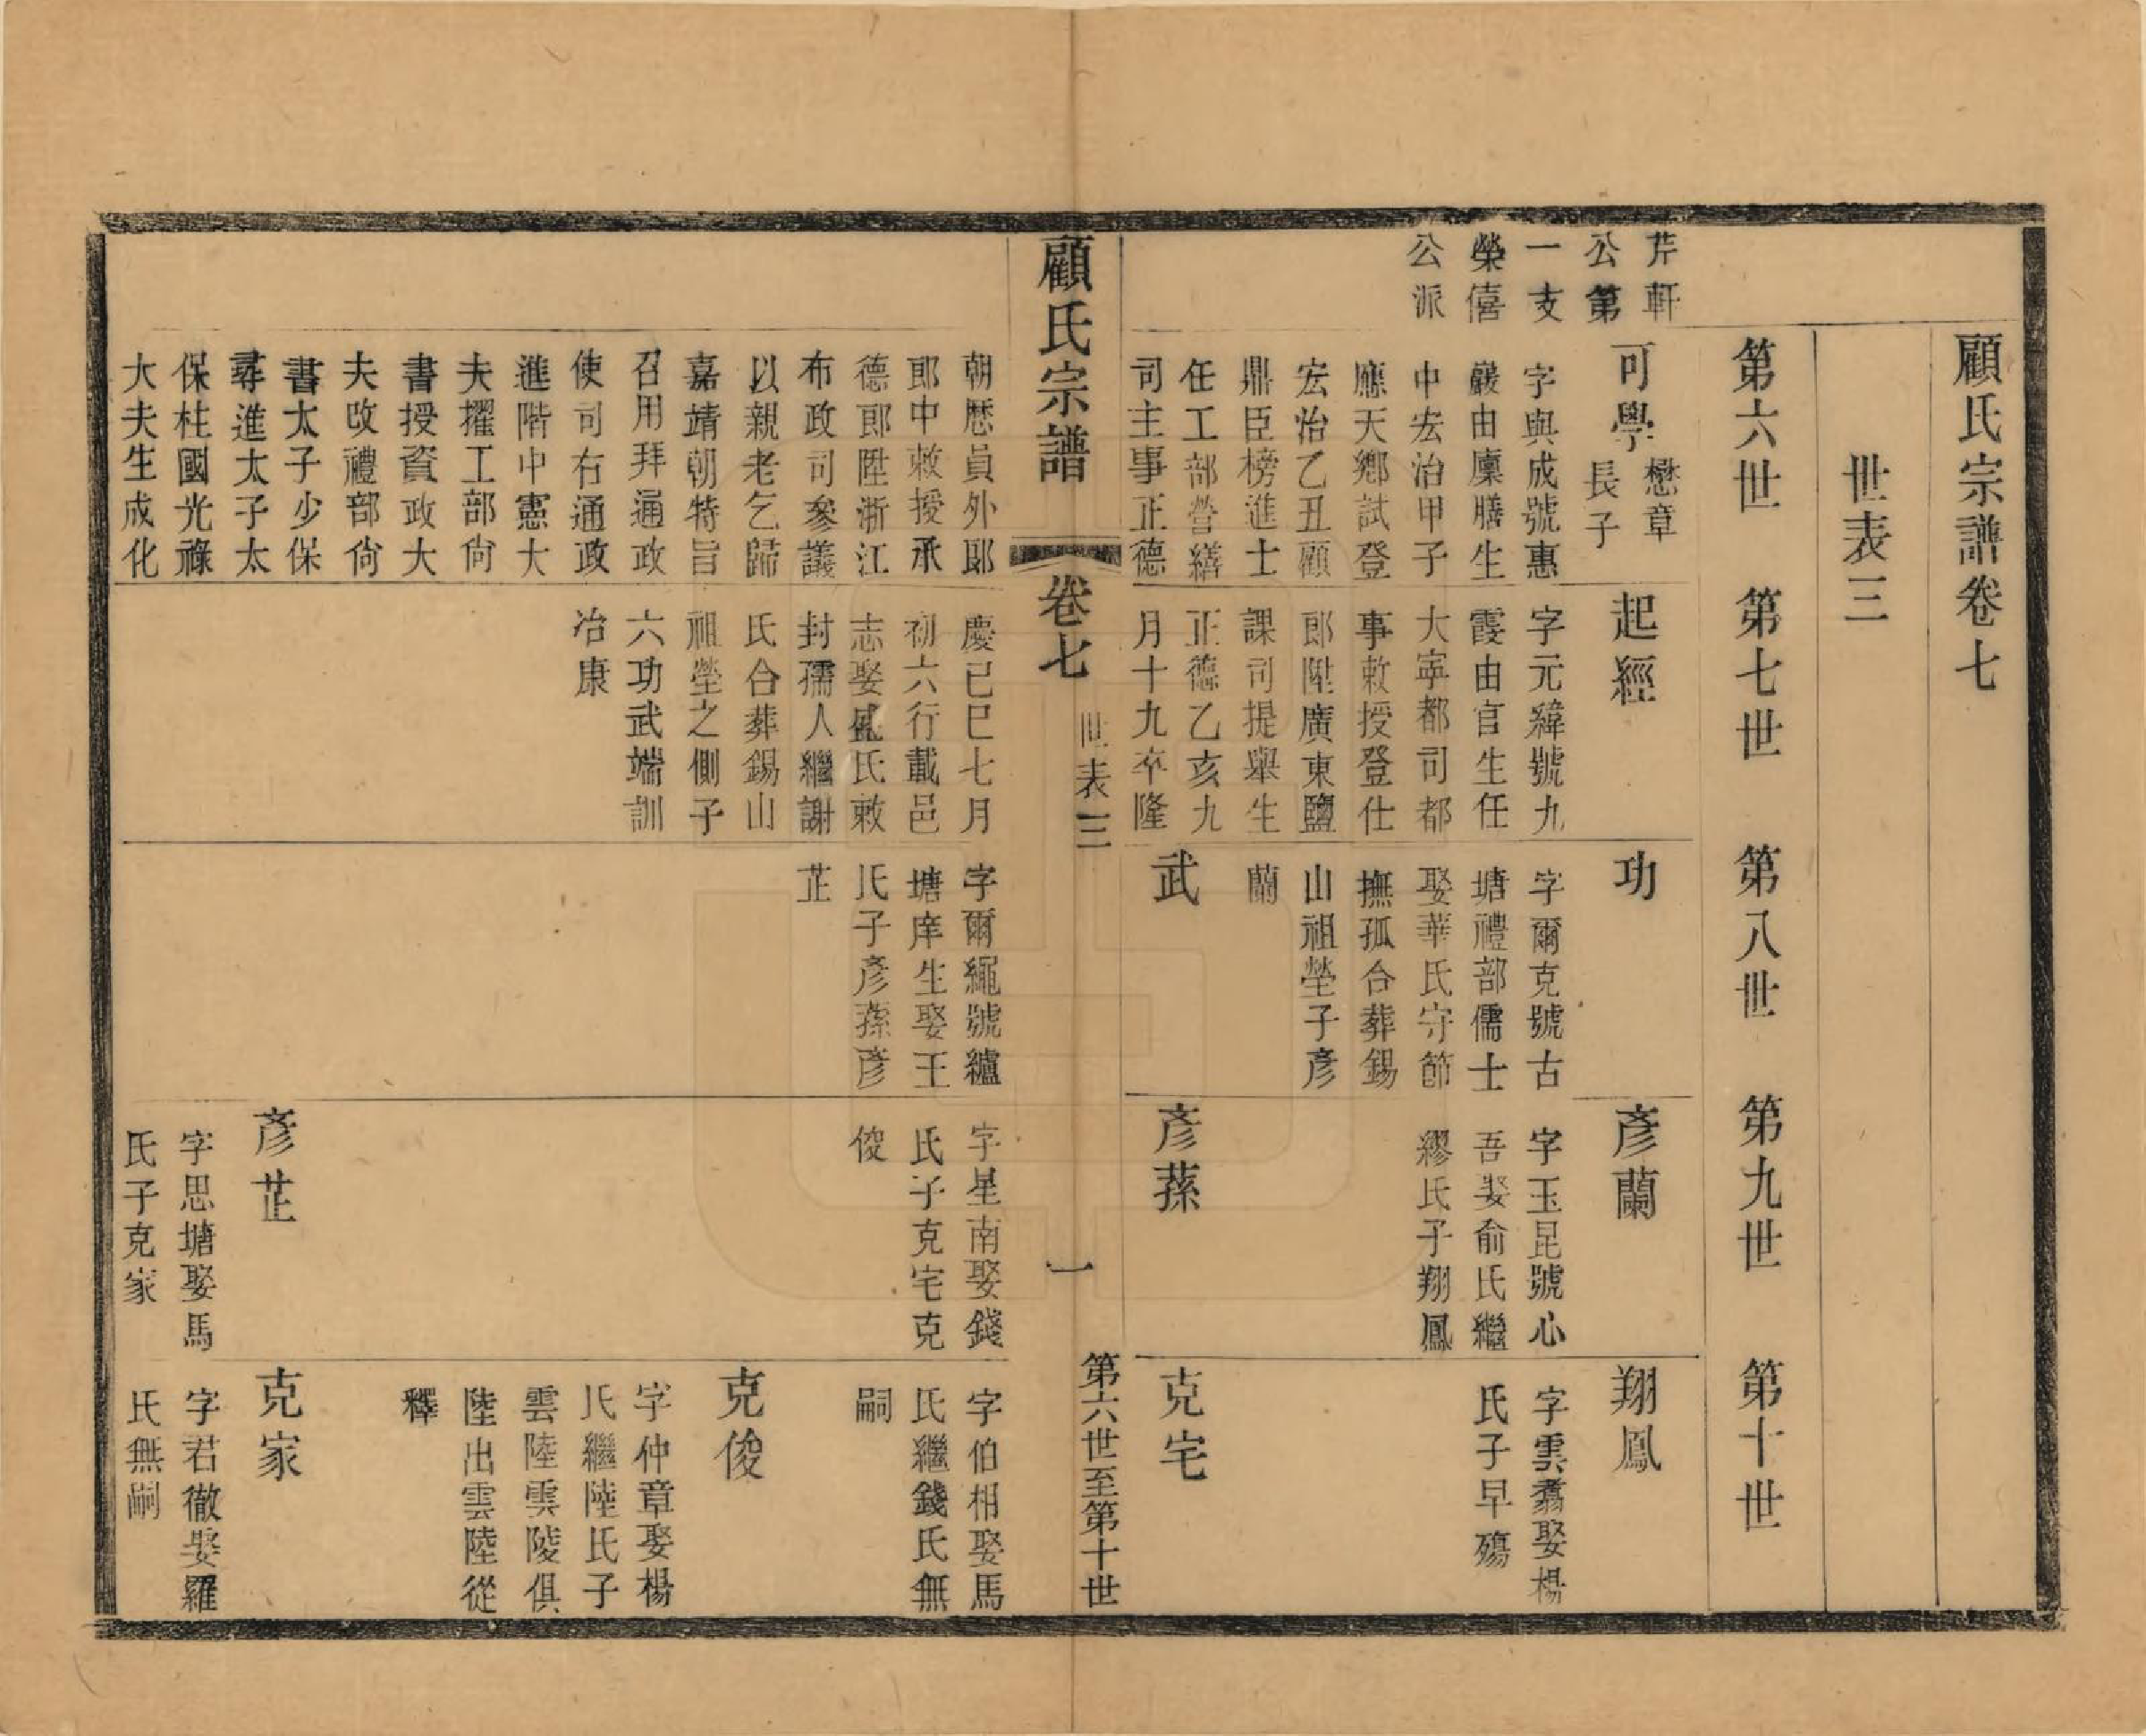 顧氏宗譜卷七
世表三
第六世
第七世
第八世
第九世
第十世
芹軒
公第
一支
榮僖
公派
可學
懋章
長子
字與成號惠
巖由廩膳生
中宏治甲子
應天鄉試登
宏治乙丑顧
鼎臣榜進士
任工部營繕
司主事正德
朝歷員外郎
郎中敕授承
德郎陞浙江
布政司參議
以親老乞歸
嘉靖朝特旨
召用拜通政
使司右通政
進階中憲大
夫擢工部尙
書授資政大
夫改禮部尙
書太子少保
尋進太子太
保柱國光祿
大夫生成化
起經
字元緯號九
霞由官生任
大寧都司都
事敕授登仕
郎陞廣東鹽
課司提舉生
正德乙亥九
月十九卒隆
慶己巳七月
初六行載邑
志娶盛氏敕
封孺人繼謝
氏合葬錫山
祖塋之側子
六功武端訓
冶康
功
字爾克號古
塘禮部儒士
娶華氏守節
撫孤合葬錫
山祖塋子彥
蘭
武
字爾繩號纑
塘庠生娶王
氏子彥蓀彥
芷
彥蘭
字玉昆號心
吾娶俞氏繼
繆氏子翔鳳
彥蓀
字星南娶錢
氏子克宅克
俊
彥芷
字思塘娶馬
氏子克家
翔鳳
字雲翥娶楊
氏子早殤
克宅
字伯相娶馬
氏繼錢氏無
嗣
克俊
字仲章娶楊
氏繼陸氏子
雲陸雲陵俱
陸出雲陸從
釋
克家
字君徹娶羅
氏無嗣
顧氏宗譜
卷七
世表三
一
第六世至第十世